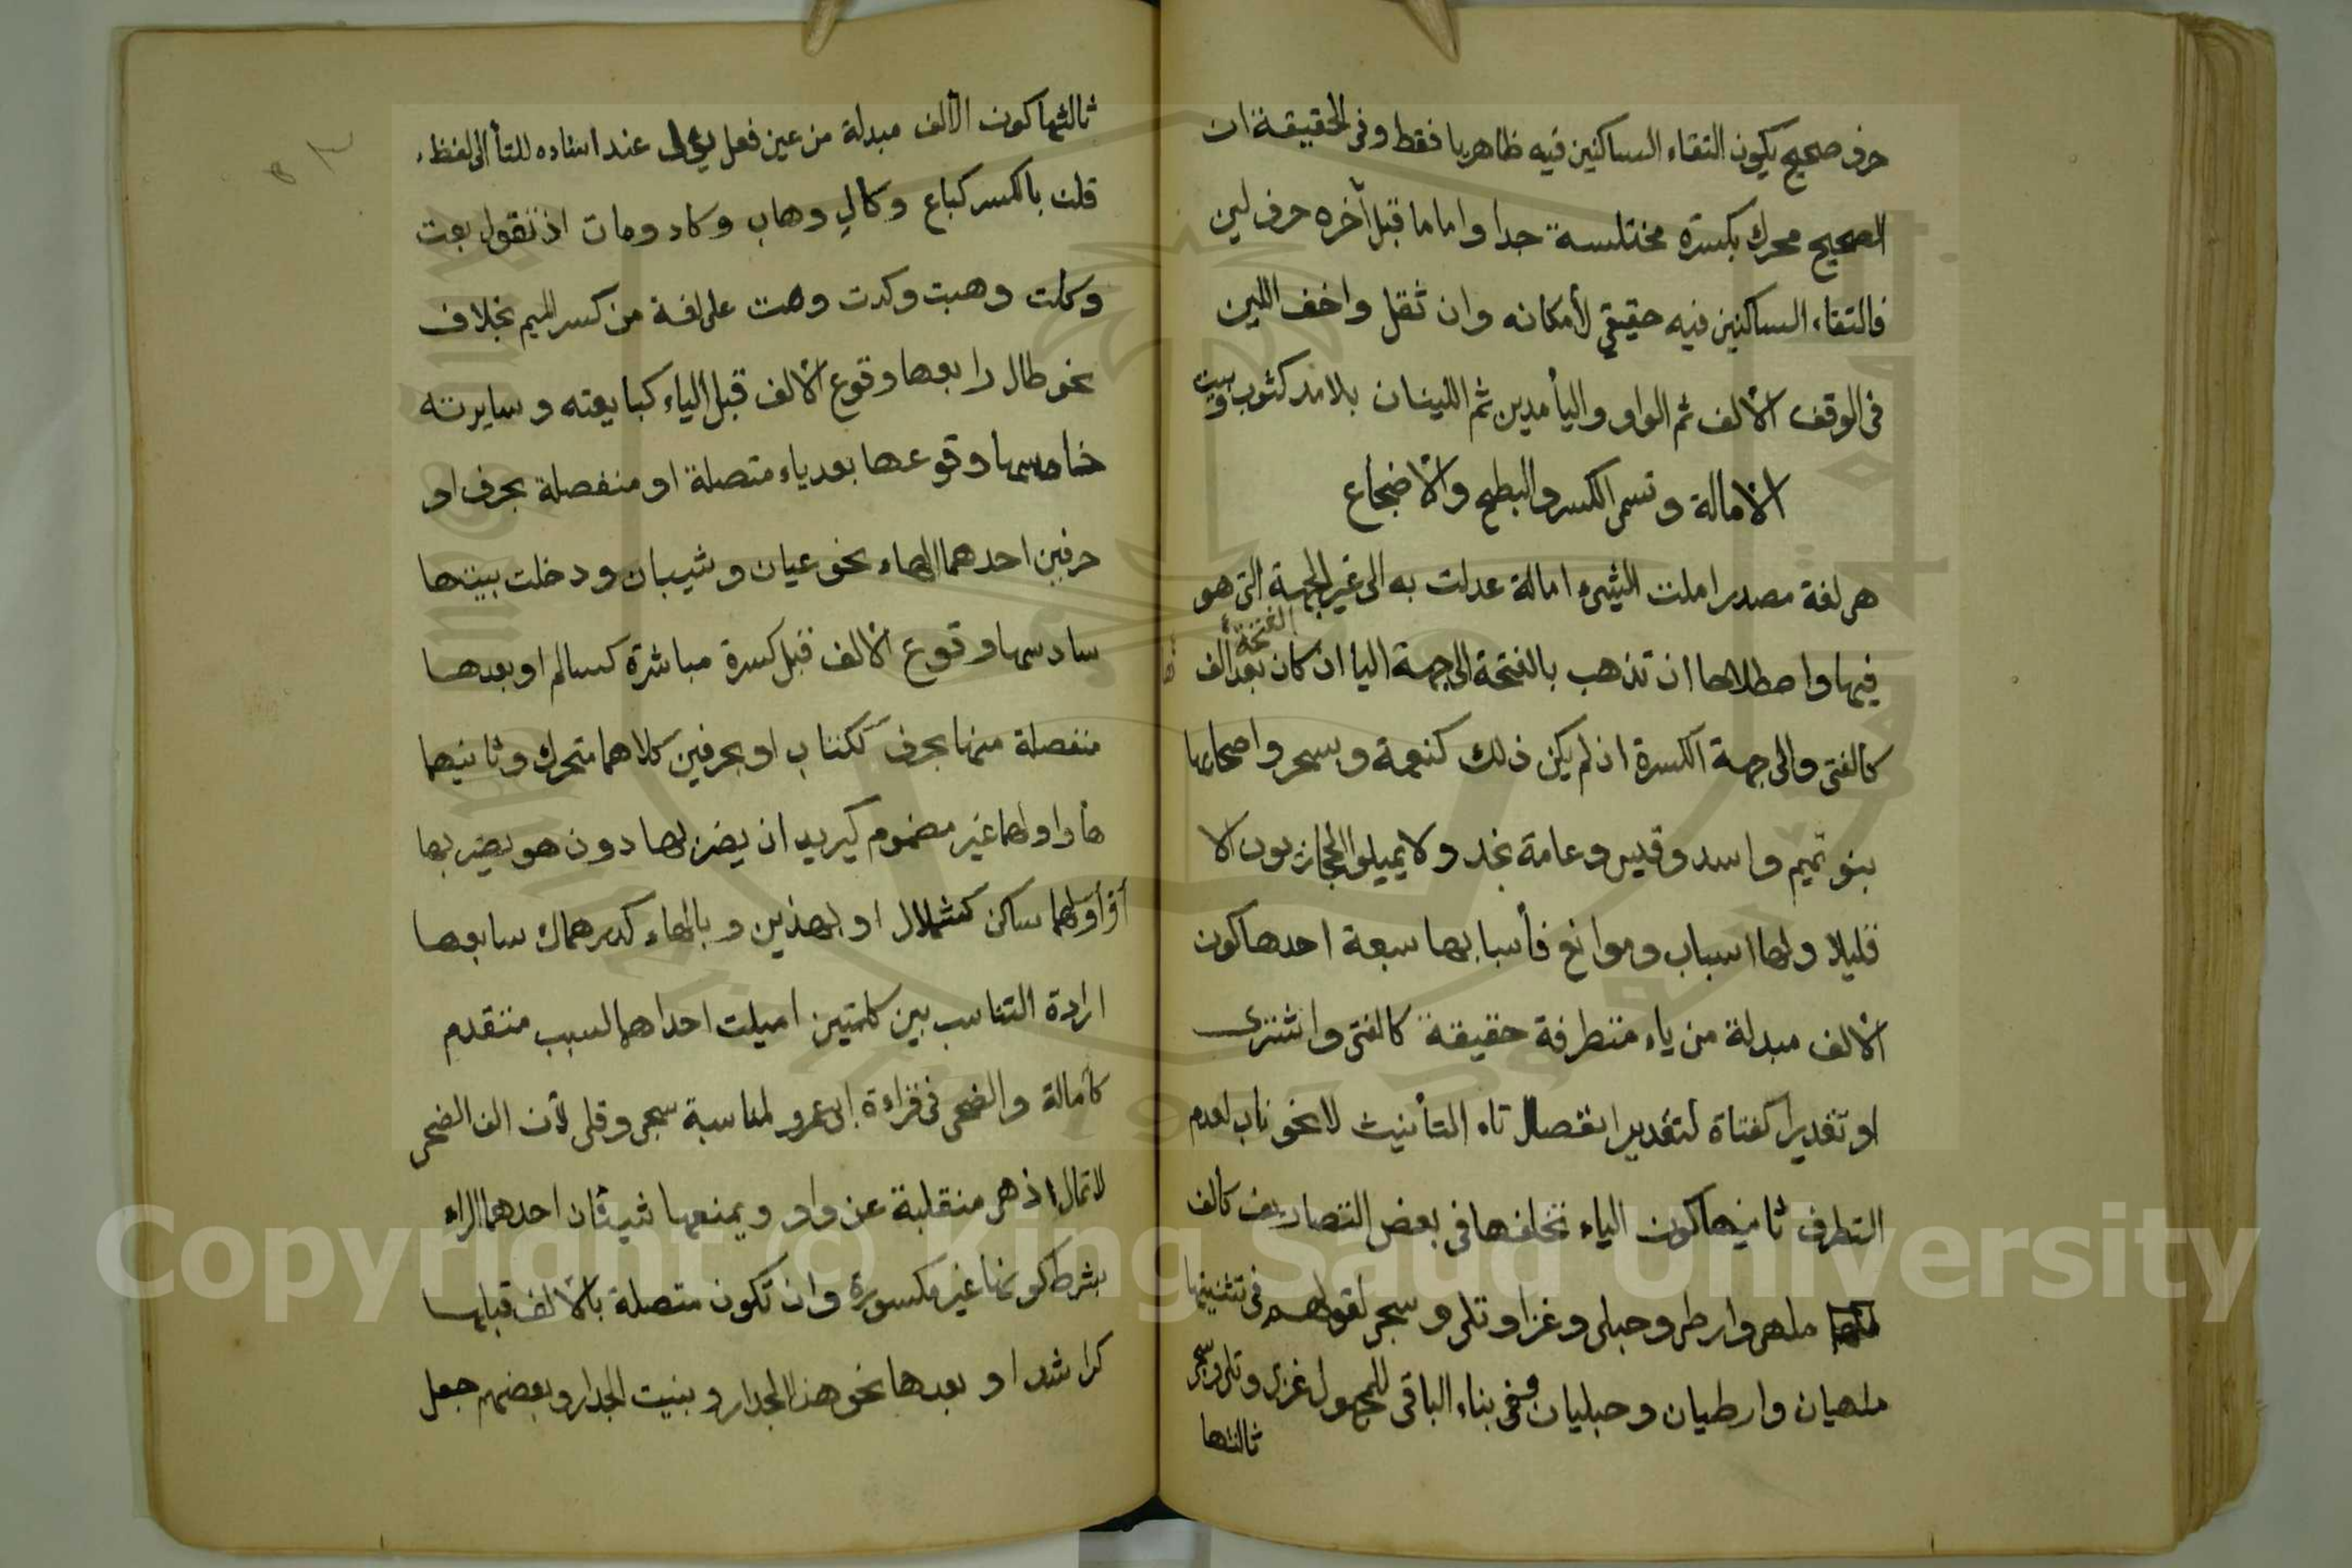 حرف صحيح يكون التقاء الساكنين فيه ظاهريا فقط وفي الحقيقة ان
الصحيح محرك بكسرة مختلسة جدا واما ما قبل أخره حرف لين
فالتقاء الساكنين فيه حقيقي لأمكانه وان ثقل واخف اللين
في الوقف الألف ثم الواو واليأ مدين ثم اللينان بلا مد كثوب وبيت
الأمالة وتسمى الكسر والبطح والأضجاع
هى لغة مصدر املت الشيء امالة عدلت به الى غير الجهة التى هو
فيها واصطلاحا ان تذهب بالفتحة الى جهة اليا ان كان بعد الفتحة الف
كالفتى والى جهة الكسرة ان لم يكن ذلك كنعمة وبسحر واصحابها
بنو تميم واسد وقيس وعامة نجد ولا يميلوا الحجازيون الا
قليلا ولها اسباب وموانع فأسبابها سبعة احدها كون
الألف مبدلة من ياء متطرفة حقيقة كالفتى واشترى
او تقديرا كفتاة لتقدير انفصال تاء التأنيث لا نحو ناب لعدم
التطرف ثانيها كون الياء تخلفها في بعض التصاريف كالف
ملهى وارطى وحبلى وغزا وتلى وسجى لقولهم في تثنيتها
ملهيان وارطيان وحبليان وفى بناء الباقى للمجهول غزى وتلى وسجى
ثالثها
ثالثها كون الألف مبدلة من عين فعل يؤل عند اسناده للتأ الى لفظ
فلت بالكسر كباع وكال وهاب وكاد ومات اذ تقول بعت
وكلت وهبت وكدت ومت على لغة من كسر الميم بخلاف
نحو طال رابعها وقوع الألف قبل الياء كبايعته وسايرته
خامسها وقوعها بعد ياء متصلة او منفصلة بحرف او
حرفين احدهما الهاء نحو عيان وشيبان ودخلت بيتها
سادسها وقوع الألف قبل كسرة مباشرة كسالم او بعدها
منفصلة منها بحرف ككتاب او بحرفين كلاهما متحرك وثانيهما
هأ واولهما غير مضموم كيريد ان يضربها دون هو يضربها
أو أولهما ساكن كشملال او بهذين وبالهاء كدرهماك سابعها
ارادة التناسب بين كلمتين اميلت احداهما لسبب متقدم
كأمالة والضحى في قراءة ابى عمرو لمناسبة سجى وقلى لأن الف الضحى
لا تمال اذ هى منقلبة عن واو ويمنعها شيئان احدهما الراء
بشرط كونها غير مكسورة وان تكون متصلة بالألف قبلها
كراشد او بعدها نحو هذا الجدار وبنيت الجدار وبعضهم جعل
Copyright © King Saud University